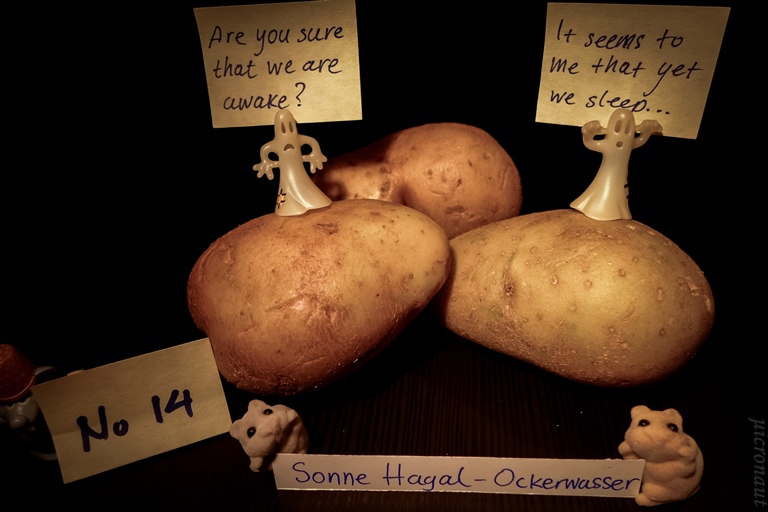 Are you sure
that we are
awake?
It seems to
me that yet
we sleep...
No 14
Sonne Hagal - Ockerwasser
μicronaut